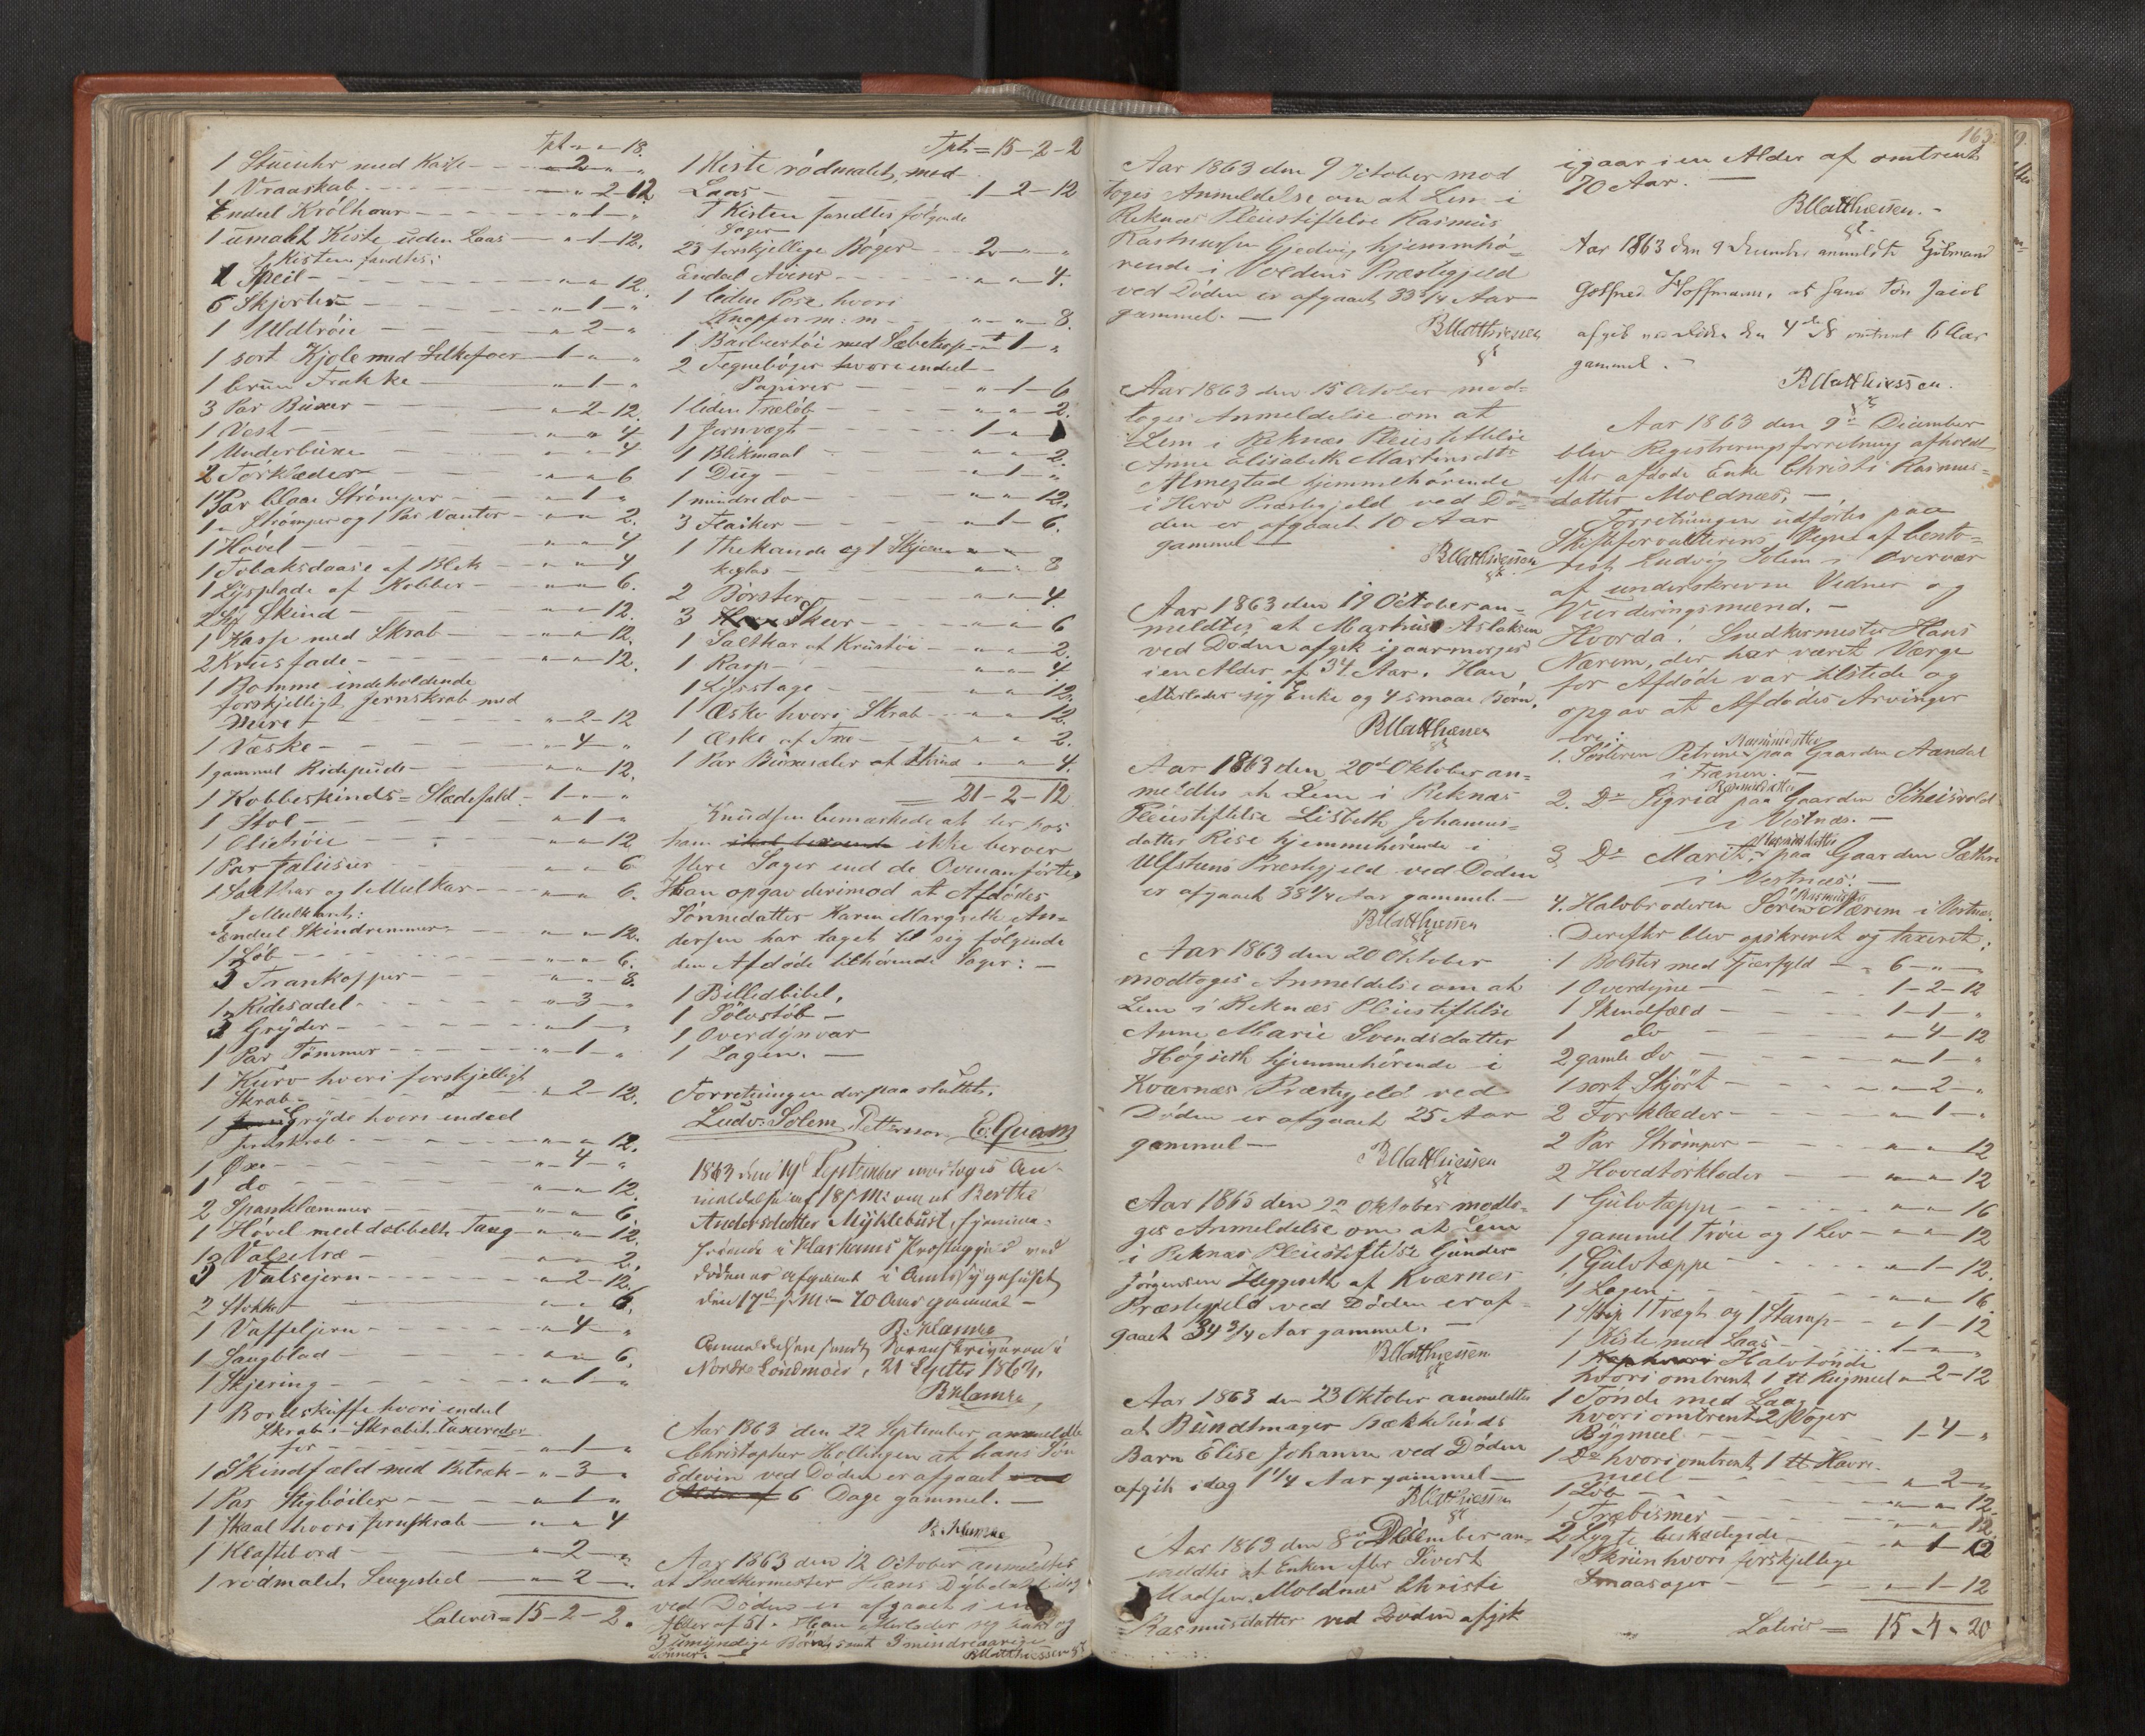 Tpt - " - 18.
1 Stueuhr med Kasse - 2 - "
1 Vraaskab - " - 2 - 12
Endeel Krölhaar - " - 1 - "
1 umalet Kiste uden Laas - " - 1 - 12.
I Kisten fandtes:
1 Speil - " - " - 12.
6 Skjorter - " - 1 - "
1 Uldtröie - " - 2 - "
1 sort Kjole med Silkefoer - 1 - " - "
1 bruun Frakke - " - 1 - "
3 Par Buxer - " - 2 - 12.
1 Vest - " - " - 4
1 Underbuxe - " - " - 4
2 Forklæder - " - " - 6
1 Par blaae Strömper - " - 1 - "
1 " Strömper og 1 Par Vanter - " - " - 2.
1 Hövel - " - " - 4
1 Tobaksdaase af Blik - " - " - 4
1 Lysplade af Kobber - " - " - 6.
2 Skind - " - " - 12.
1 Kasse med Skrab - " - " - 12.
2 Kruusfade - " - " - 12.
1 Bomme indeholdende
forskjelligt Jernskrab med
Mere - " - 2 - 12
1 Væske - " - 4 - "
1 gammel Ridepude - " - " - 12.
1 Kobbeskinds = Slædefeld - 1 - " - "
1 Stol - " - 1 - "
1 Olietröie - " - " - 12
1 Par Jalusier - " - " - 6
1 Saltkar og 1 Mulkar - " - " - 6.
I Mulkaret:
Endeel Skindremmer - " - " - 12.
1 Löb - " - " - 6.
3 Trankopper - " - " - 8.
1 Ridesadel - " - 3 - "
3 Gryder - " - 1 - "
1 Par Tömmer - " - 1 - "
1 Kurv hvori forskjelligt
Skrab - " - 2 - 12.
1 Gryde hvori endeel
Jernskrab - " - " - 12.
1 Öxe - " - 4 - "
1 do - " - " - 12.
2 Spanklæmmer - " - " - 6
1 Hövel med dobbelt Tang - " - " - 12.
Valsetræ - " - " - 2.
3 Valsejern - " - 2 - 12.
2 Stokke - " - " - 6.
1 Vaffeljern - " - 4 - "
1 Saugblad - " - " - 6.
1 Skjering - " - 1 - "
1 Bordskuffe hvori endeel
Skrab. Skrabet taxeredes
for - " - 1 - "
1 Skindfæld med Betræk - " - 3 - "
1 Par Stigböiler - " - 1 - "
1 Skaal hvori Jernskrab - " - " - 4
1 Klaftebord - " - 2 - "
1 rödmalet Sengested - " - 2 - "
Lateris = 15 - 2 - 2.
Tpt. = 15 - 2 - 2
1 Kiste rödmalet, med
Laas - 1 - 2 - 12
I Kisten fandtes fölgende
Sager
23 forskjellige Böger - 2 - " - "
Endeel Aviser - " - " - 4.
1 liden Pose hvori
Knapper m: m - " - " - 8.
1 Barbeertöi med Sæbekop - " - 1 - "
2 Tegneböger hvori endeel
Papirer - " - 1 - 6
1 liden Trælöb - " - " - 2.
1 Jernvægt - 1 - "
1 Blikmaal - " - " - 2.
1 Dug - " - 1 - "
1 mindre do - " - " - 12.
3 Flasker - " - 1 - 6.
1 Thekande og 1 Skjæn-
keglas - " - " - 8
2 Börster - " - " - 4.
3 Skeer - " - " - 6
1 Saltkar af Kruustöi - " - " - 2.
1 Rasp - " - " - 4
1 Lysstage - " - " - 12.
1 Æske hvori Skrab - " - " - 12.
1 Æske af Træ - " - " - 2.
1 Par Buxeseler af Skind - " - " - 4.
21 - 2 - 12
Knudsen bemærkede at der hos
ham ikke beroer
flere Sager end de Ovenanförte.
Han opgav derimod at Afdödes
Sönnedatter Karen Margrethe An-
dersen har taget til sig fölgende
den Afdöde tilhörende Sager: -
1 Billedbibel,
1 Sölvstöb -
1 Overdynvar
1 Lagen. -
Forretningen derpaa sluttet.
Ludv: Solem Petterson E. Quam
1863 den 19de September modtoges An-
meldelse af 18 d. M: om at Berthe
Andersdatter Myklebust, hjemme-
hörende i Harhams Præstegjeld ved
döden er afgaaet i Amtssygehuset
den 17de d. M: - 70 Aar gammel -
B. Klamke
Anmeldelsen sendt Sorenskriveren i
Nordre Söndmör, 21 Septbr 1863.
B Klamke
Aar 1863 den 22 September anmeldte
Christopher Hellingen at hans Sön
Edevin ved Döden er afgaaet
6 Dage gammel. -
B. Klamke
Aar 1863 den 12 October anmeldtes
at Snedkermester Hans Dybdahl idag
ved Döden er afgaaet i en
Alder af 51. Han efterlader sig Enke og
3 umyndige Börn samt 3 mindreaarige
Sönner. -
BMatthiessen
163.
Aar 1863 den 9 October mod
toges Anmeldelse om at Lem i
Reknæs Pleiestiftelse Rasmus
Rasmussen Gjedvig, hjemmehö-
rende i Voldens Præstegjeld
ved Döden er afgaaet 33 3/4 Aar
gammel. -
BMatthiessen
Aar 1863 den 15 October mod-
toges Anmeldelse om at
Lem i Reknæs Pleiestiftelse
Anne Elisabeth Martinsdtr
Almestad hjemmehörende
i Herö Præstegjeld ved Dö-
den er afgaaet 10 Aar
gammel -
BMatthiessen
Aar 1863 den 19 October an-
meldtes at Martinus Aslaksen
ved Döden afgik igaar morges
i en Alder af 34 Aar. Han
efterlader sig Enke og 4 smaae Börn.
BMatthiessen
Aar 1863 den 20de Oktober an-
meldtes at Lem i Reknæs
Pleiestiftelse Lisbeth Johannes-
datter Rise hjemmehörende i
Ulfstens Præstegjeld ved Döden
er afgaaet 38 1/4 Aar gammel. -
BMatthiessen
Aar 1863 den 20 Oktober
modtoges Anmeldelse om at
Lem i Reknæs Pleiestiftelse
Anne Marie Svendsdatter
Högseth hjemmehörende i
Kværnæs Præstegjeld ved
Döden er afgaaet 25 Aar
gammel -
BMatthiessen
Aar 1863 den 22 Oktober modto-
ges Anmeldelse om at Lem
i Reknæs Pleiestiftelse Gunder
Jörgensen Heggeseth af Kværnes
Præstegjeld ved Döden er af-
gaaet 34 3/4 Aar gammel. -
BMatthiessen
Aar 1863 den 23 Oktober anmeldtes
at Bundtmager Brekkesunds
Barn Elise Johanne ved Döden
afgik idag 1 1/4 Aar gammel -
BMatthiessen
Aar 1863 den 8 December an-
meldtes at Enken efter Sivert
Madsen Moldnæs Christi
Rasmusdatter ved Döden afgik
igaar i en Alder af omtrent
70 Aar. -
BMatthiessen. -
Aar 1863 den 9 December anmeldte Gjörtmand
Gotfred Hoffmann, at hans Sön Jacob
afgik ved Döden den 4de ds omtrent 6 Aar
gammel. -
BMatthiessen.
Aar 1863 den 9de December
blev Registreringsforretning afholdt
efter afdöde Enke Christi Rasmus-
datter Moldnæs. -
Forretningen udförtes paa
Skifteforvalterens Vegne af Conto-
rist Ludvig Solem i Overvær
af underskrevne Vidner og
Vurderingsmænd. -
Hvorda! Snedkermester Hans
Nærem, der har været Værge
for Afdöde var tilstede og
opgav at Afdödes Arvinger
ere:
1. Sösteren Petrine Rasmusdatter paa Gaarden Aandal
i Frænen. -
2. Do Sigrid Rasmusdatter paa Gaarden Skeisvold
i Vestnæs. -
3. Do Marit Rasmusdatter paa Gaarden Sæthre
i Vestnæs. -
4. Halvbroderen Sören Rasmussen Nærem i Vestnæs.
Derefter blev opskrevet og taxeret:
1 Bolster med Fjærfyld - " 6 - " - "
1 Overdyne - 1 - 2 - 12
1 Skindfæld - 1 - 1 - "
1 do - " - 4 - 12
2 gamle do - " - 1 - "
1 sort Skjört - " - 2 - "
2 Forklæder - " - 1 - "
2 Par Strömper - " - " - 12
2 Hovedtörklæder - " - " - 12
1 Gulvtæppe - " - " - 16
1 gammel Tröie og 1 Lev - " - " - 12
1 Gulvtæppe - " - 1 - 12.
1 Lagen - " - " - 16.
1 Strip 1 Trægt og 1 Stamp - " - 1 - 12
1 Kiste med Laas - 1 - " - "
1 Halvtönde
hvori omtrent 1 # Rugmeel " - 2 - 12
1 Tönde med Laag
hvori omtrent 2 Voger
Bygmeel - 1 - 4 - "
1 Do hvori omtrent 1 # Havre-
meel - " - 2 - "
1 Löb - " - " - 12.
1 Træbismer - " - " - 12.
2 Lygte beskadigede - " - 1 - 12
1 Skriin hvori forskjellige
Smaasager - " - 1 - 12
Lateris = 15 - 4 - 20